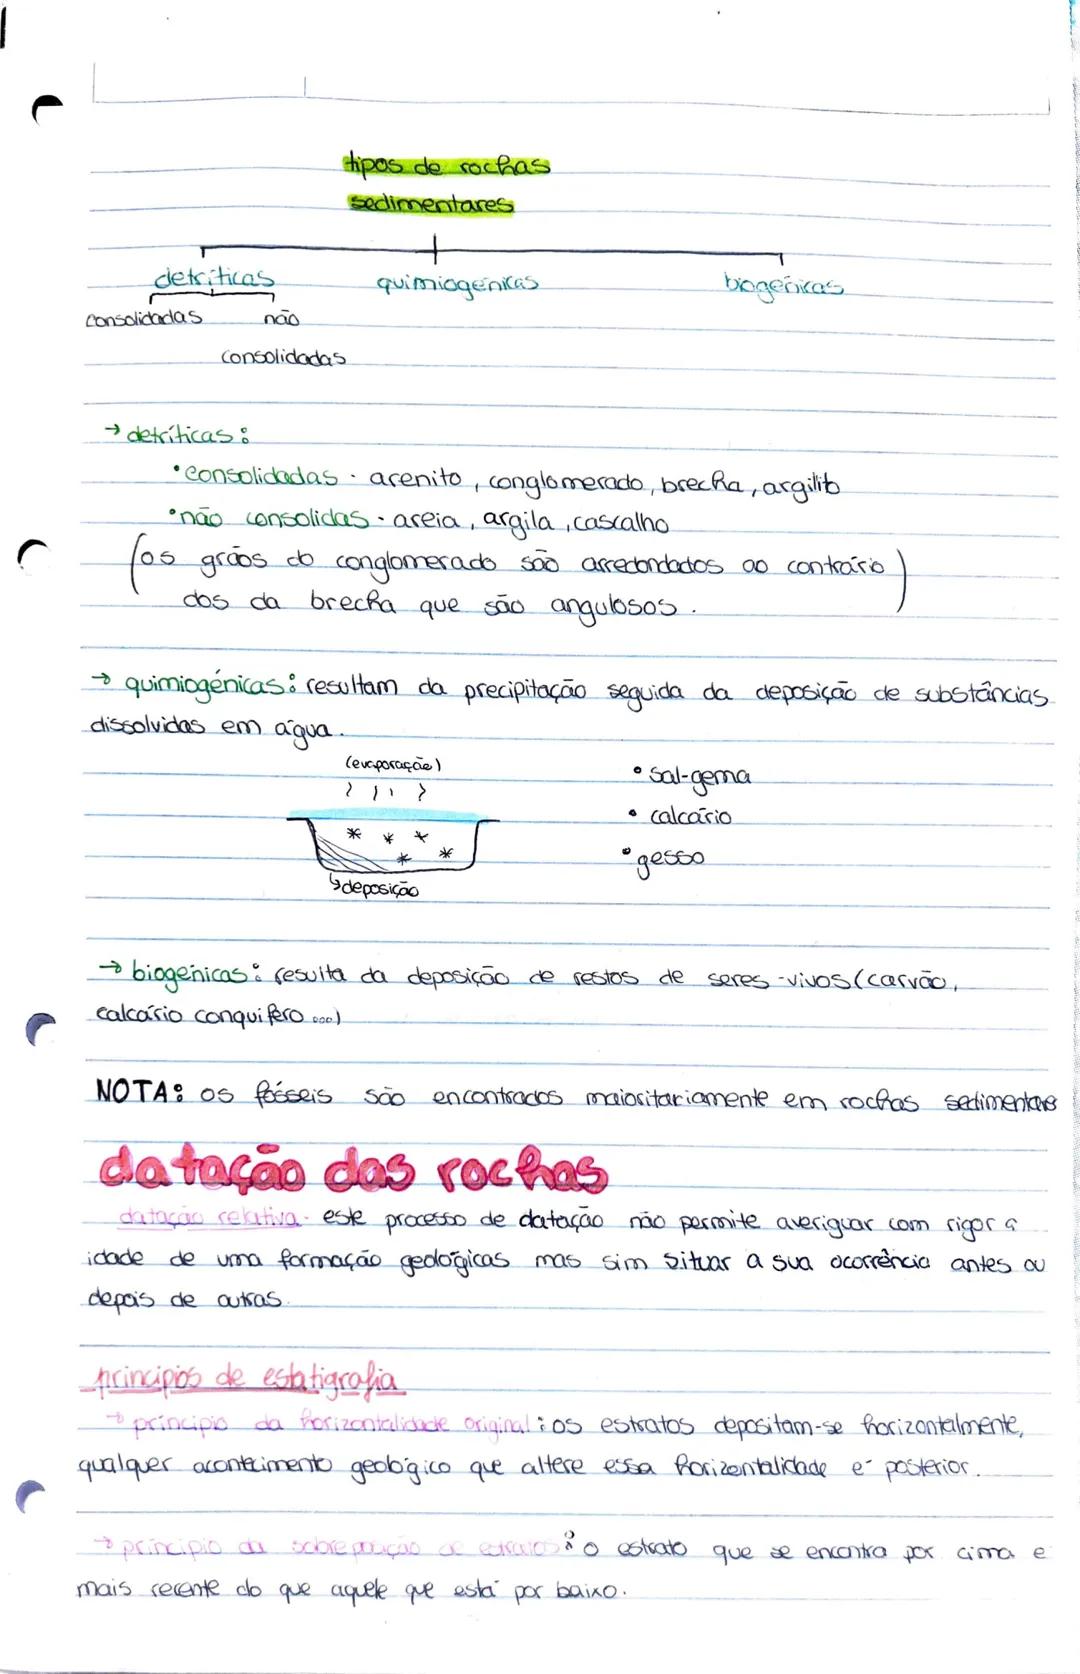 tipos de rochas
sedimentares
detríticas quimiogénicas biogénicas
consolidadas não
consolidadas
→ detríticas:
• consolidadas - arenito, conglomerado, brecha, argilito
• não consolidas - areia, argila, cascalho
(os grãos do conglomerado são arredondados ao contrário
dos da brecha que são angulosos.)
→ quimiogénicas: resultam da precipitação seguida da deposição de substâncias
dissolvidas em água.
(evaporação)
• sal-gema
• calcário
• gesso
↳ deposição
→ biogénicas: resulta da deposição de restos de seres-vivos (carvão,
calcário conquífero ...)
NOTA: os fósseis são encontrados maioritariamente em rochas sedimentares
datação das rochas
datação relativa - este processo de datação não permite averiguar com rigor a
idade de uma formação geológicas mas sim situar a sua ocorrência antes ou
depois de outras.
princípios de estatigrafia
→ princípio da horizontalidade original: os estratos depositam-se horizontalmente,
qualquer acontecimento geológico que altere essa horizontalidade é posterior.
→ princípio da sobreposição de estratos: o estrato que se encontra por cima é
mais recente do que aquele que está por baixo.